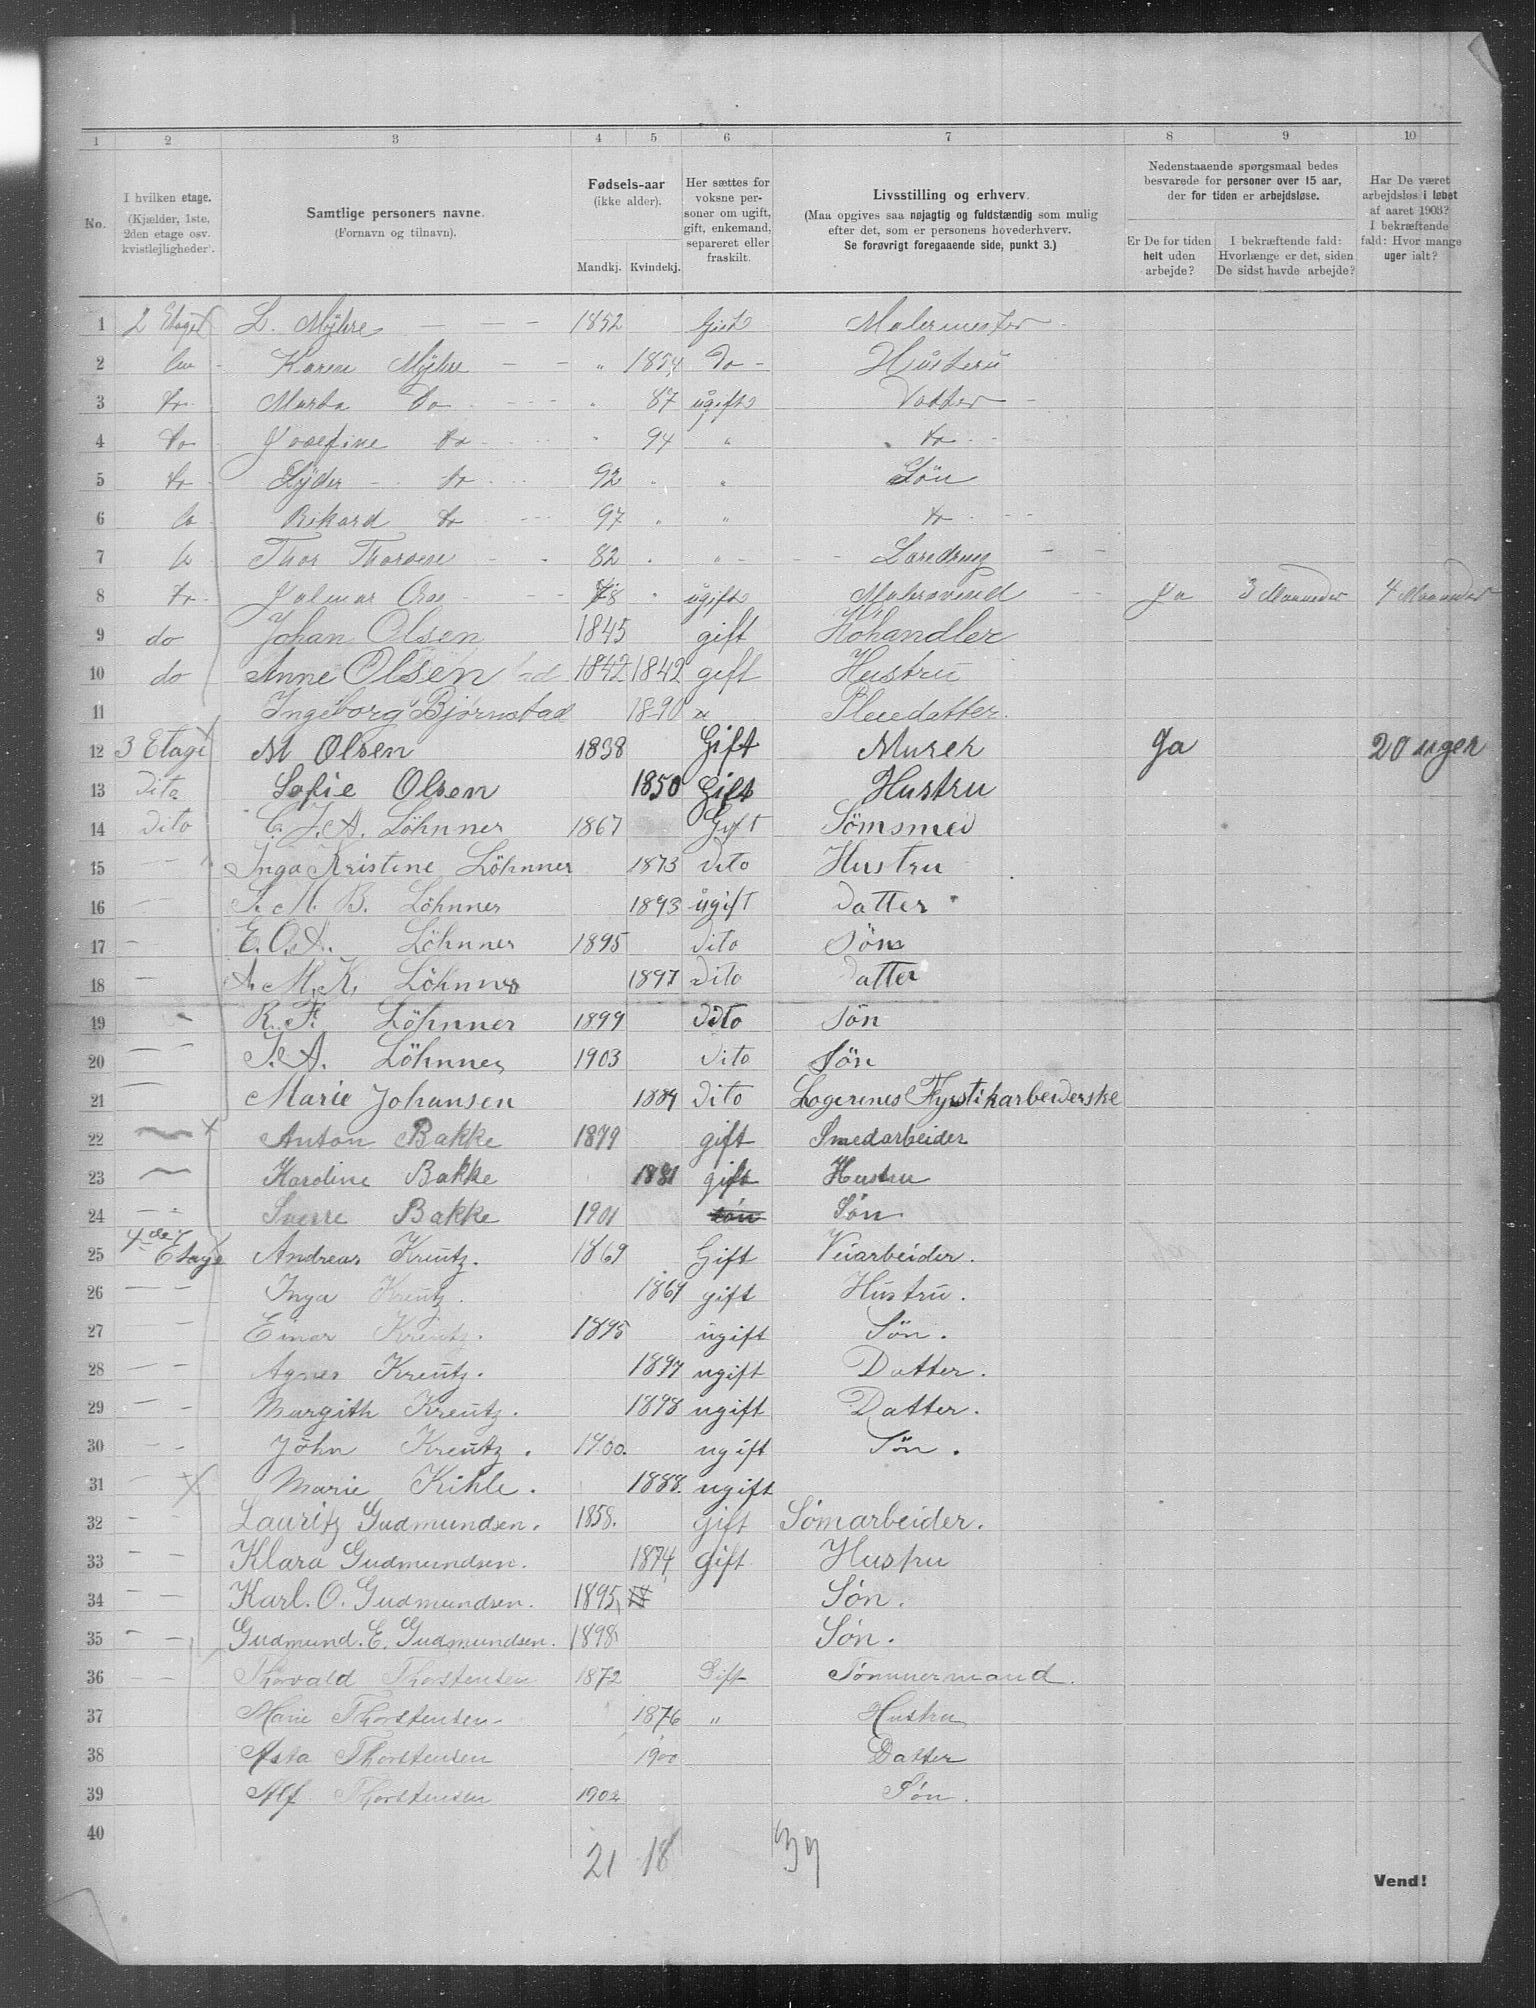 1 2 3 4 5 6 7 8 9 10
No. | I hvilken etage. (Kjælder, 1ste, 2den etage osv. kvistleiligheder). | Samtlige personers navne. (Fornavn og tilnavn). | Fødsels-aar (ikke alder). Mandkj. Kvindekj. | Her sættes for voksne personer om ugift, gift, enkemand, separeret eller fraskilt. | Livsstilling og erhverv. (Maa opgives saa nøjagtig og fuldstændig som mulig efter det, som er personens hovederhverv. Se forøvrigt foregaaende side, punkt 3.) | Nedenstaaende spørgsmaal bedes besvarede for personer over 15 aar, der for tiden er arbejdsløse. Er De for tiden helt uden arbejde? | I bekræftende fald: Hvorlænge er det, siden De sidst havde arbejde? | Har De været arbejdsløs i løbet af aaret 1903? I bekræftende fald: Hvor mange uger ialt?
1 2 Etage L. Myhre 1852 Gift Malermester
2 Karen Myhre " 1854 Do Hüstru
3 do Marta Do " 87 ugift Datter
4 do Josefine do " 94 " do
5 do do 92 " " Søn
6 do Rikard do 97 " " do
7 do Thor 82 " "
8 do Hjalmar 78 " ugift Malersvend Ja 3 Maaneder 4 Maaneder
9 do Johan Olsen 1845 gift Høhandler
10 do Anne Olsen 1842 1842 gift Hustru
11 Ingeborg Bjørnstad 1890 " Pleiedatter.
12 3 Etage M Olsen 1838 Gift Murer Ja 20 uger
13 Dito Sofie Olsen 1850 Gift Hustru
14 Dito C. J. A. Löhnner 1867 Gift Sømsmed
15 — Inga Kristine Löhnner 1873 Dito Hustru
16 — M. B. Löhnner 1893 ügift Datter
17 — E. O. A. Löhnner 1895 Dito Søn
18 — A. M. K. Löhnner 1897 Dito Datter
19 - R. F. Löhnner 1899 Dito Søn
20 — — A. Löhnner 1903 Dito Søn
21 — Marie Johansen 1884 Dito Logerenes Fyrstikarbeiderske
22 — Anton Bakke 1879 gift Smedarbeider
23 — Karoline Bakke 1881 gift Hustru
24 — - Sverre Bakke 1901 søn Søn
25 4de Etage Andreas Kreutz. 1869 Gift Veiarbeider.
26 — — Inga Kreutz. 1869 gift Hüstru.
27 — — Einar Kreutz. 1895 ugift Søn.
28 — — Agnes Kreütz. 1897 ugift Datter.
29 — - Margith Kreütz. 1898 ugift Datter.
30 - - John Kreütz. 1900. ugift Søn.
31 - Marie Kihle. 1888. ugift
32 - - Lauritz Gudmundsen. 1858. Gift Sømarbeider.
33 - - Klara Gudmundsen. 1874 gift Hustru
34 - - Karl. O. Gudmundsen. 1895 Søn.
35 - - Gudmund. E. Gudmundsen. 1898 Søn.
36 Thorvald Thorstensen 1872 Gift Tømmermand.
37 Marie Thorstensen 1876 " Hustru
38 Asta Thorstensen 1900 Datter
39 Alf Thorstensen 1902 Søn.
40
21 18 39
Vend!